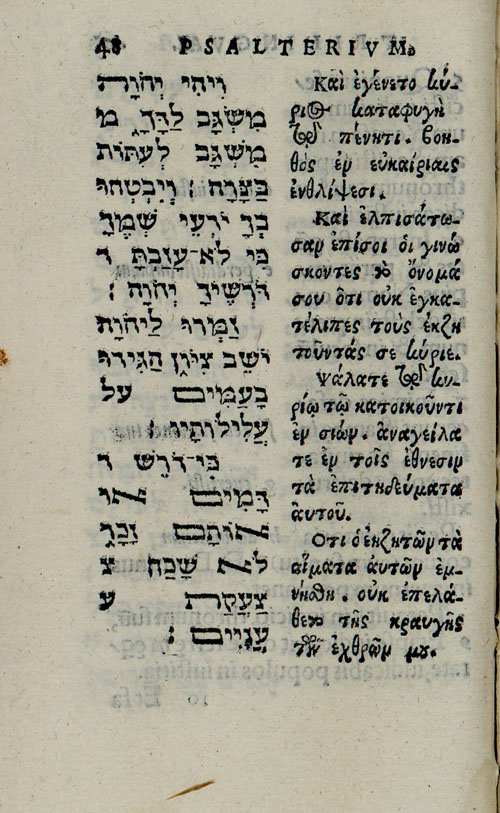 48 PSALTERIVM
וִיהִי יְהֹוָה
מִשְׂגָּב לַדָּךְ מי
מִשְׂגָּב לְעִתּוֹת
בַּצָּרָה׃ וְיִבְטְחוּ
בְךָ יֹדְעֵי שְׁמֶךָ
כִּי לֹא־עָזַבְתָּ ד
דֹּרְשֶׁיךָ יְהֹוָה׃
זַמְּרוּ לַיהֹוָה
יֹשֵׁב צִיּוֹן הַגִּידוּ
בָעַמִּים על
עֲלִילוֹתָיו׃
כִּי־דֹרֵשׁ ד
דָּמִים או
אוֹתָם זָכָר
לֹא שָׁכַח צ
צַעֲקַת ע
עֲנִיִּים׃
Καὶ ἐγένετο κύ-
ριος καταφυγὴ
τῷ πένητι. βοη-
θὸς ἐν εὐκαίριαις
ἐνθλίψεσι.
Καὶ ἐλπισάτω-
σαν ἐπίσοι οἱ γινώ
σκοντες τὸ ὄνομά
σου ὅτι οὐκ ἐγκα-
τέλιπες τοὺς ἐκζη
τοῦντάς σε κύριε.
Ψάλατε τῷ κυ-
ρίῳ τῷ κατοικοῦντι
ἐν σιών. ἀναγείλα
τε ἐν τοῖς ἔθνεσιν
τὰ ἐπιτηδεύματα
αὐτοῦ.
Οτι ὁ ἐκζητῶν τὰ
αἵματα αὐτῶν ἐμ-
νήσθη. οὐκ ἐπελά-
θετο τῆς κραυγῆς
τῶν ἐχθρῶν μου.